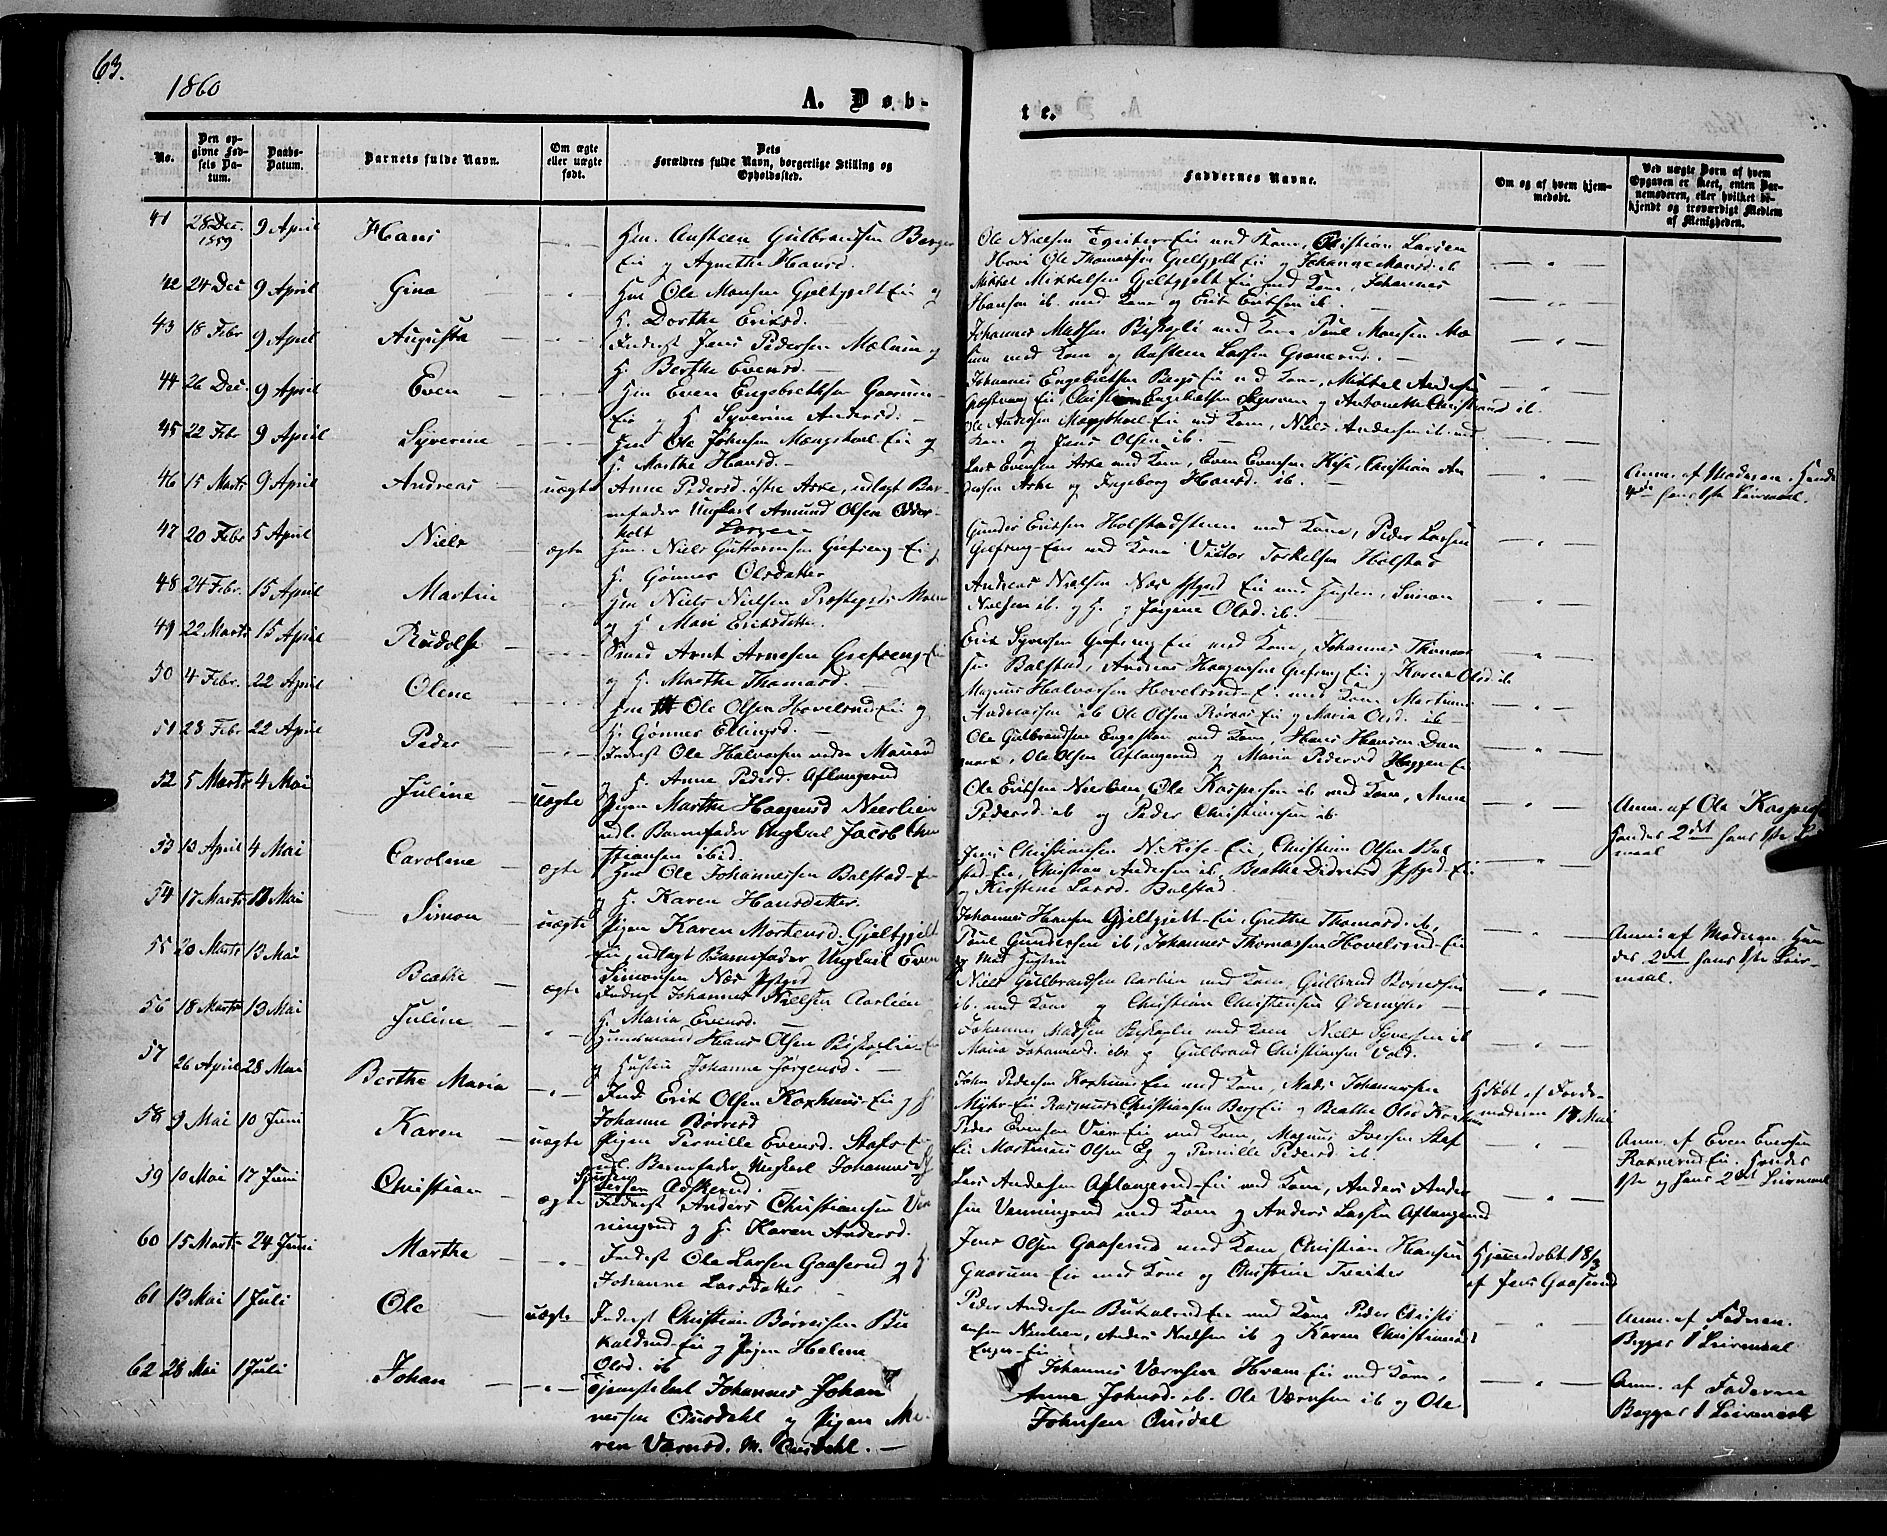 63.
1860
A. Døb-
te.
No.
Den op-
givne Fød-
sels Da-
tum.
Daabs-
Datum.
Barnets fulde Navn.
Om ægte
eller uægte
født.
Dets
Forældres fulde Navn, borgerlige Stilling og
Opholdssted.
Faddernes Navne.
Om og af hvem hjem-
medøbt.
Ved uægte Børn af hvem
Opgaven er skeet, enten Bar-
nemoderen, eller hvilket be-
kjendt og troværdigt Medlem
af Menigheden.
41 28 Dec. 1859 9 April Hans
Hm. Austeen Gulbrandsen Berger
Eie og Agnethe Hansd.
Ole Nielsen Eie med Kone, Christian Larsen
Hovi Ole Thomassen Gjeltgjelt Eie og Johanne Hansd. ib
42 24 Dec 9 April Gina
Hm Ole Monsen Gjeltgjelt Eie og
H. Dorthe Eriksd.
Mikkel Mikkelsen Gjeltgjelt Eie med Kone, Johannes
Hansen ib. med Kone og Erik Eriksen ib.
43 18 Febr 9 April Augusta
Inderst Jens Pedersen Mælum og
H. Berthe Evensd.
Johannes Madsen Biskopli med Kone Poul Monsen Mæ
lum med Kone og Austeen Larsen Granerud.
44 26 Dec. 9 April Even
Hm Even Engebrethsen Gaarum-
Eie og H. Syverine Andersd.
Johannes Engebretsen Bergs Eie md Kone, Mikkel Andersen
Eie, Christian Engebretsen og Antonette Christiansd ib.
45 22 Febr 9 April Syverine
Hm Ole Johnsen Mængshoel Eie og
H. Marthe Hansd.
Ole Andersen Mængshoel Eie med Kone, Niels Andersen ib. md
Kone og Jens Olsen ib.
46 15 Marts 9 April Andreas uægte
Anne Pedersd. østre Aske, udlagt Bar-
nefader Ungkarl Amund Olsen Odder-
holt
Lars Evensen Aske med Kone, Even Evensen Kise, Christian An
dersen Aske og Ingeborg Hansd. ib.
Anm. af Moderen. Hendes
4de hans 1ste Leiermaal.
47 20 Febr 5 April Niels ægte
Hm. Niels Guttormsen Grefseng-Eie og
H. Gønner Olsdatter
Gunder Eriksen Holstadsteen med Kone, Peder Larsen
Grefseng-Eie med Kone Victor Torkelsen Holstad
48 24 Febr. 15 April Martin
Hm Niels Nielsen Præstegrds Moen
og H Mari Eriksdatter.
Andreas Nielsen Næs Pstgrd Eie med Hustru, Simon
Nielsen ib. og H. og Jørgine Olsd. ib.
49 22 Marts 15 April Rudolf
Smed Arnt Arnesen Grefseng-Eie
og H. Marthe Thomasd.
Erik Syversen Grefseng Eie med Kone, Johannes Thomas
sen Balstad, Andreas Haagensen Grefseng Eie og Karen Olsd ib
50 4 Febr. 22 April Olene
Hm Ole Olsen Hovelsrud Eie og
H. Gønner Ellingsd.
Magnus Halvorsen Hovelsrud-Eie med Kone Martinus
Andreassen ib Ole Olsen Røraas Eie og Maria Olsd. ib
51 23 Febr 22 April Peder
Inderst Ole Halvorsen nedre
og H. Anne Pedersd. Aflangerud
Ole Gulbrandsen Engeskov med Kone, Hans Hansen Dan
mark, Ole Olsen Aflangerud og Maria Pedersd Haggen Eie
52 5 Marts 4 Mai Juline uægte
Pigen Marthe Haagensd Neerlien
udl. Barnefader Ungkarl Jacob Chri
stiansen ibid.
Ole Eriksen Neerlien, Ole Kaspersen ib med Kone, Anne
Pedersd. ib og Peder Christiansen ib
Anm. af Ole Kaspersen
Hendes 2det hans 1ste Leier
maal
53 13 April 4 Mai Caroline ægte
Hm Ole Johannessen Balstad-Eie
og H. Karen Hansdatter.
Jens Christiansen N. Kise-Eie, Christian Olsen Bal
stad-Eie, Christian Andersen ib, Beathe Didriksd Pstgrd-Eie
og Kirstine Larsd. Balstad.
54 17 Marts 11 Mai Simon uægte
Pigen Karen Mortensd. Gjeltgjelt
Eie, udlagt Barnefader Ungkarl Even
Simonsen Næs Pstgrd
Johannes Hansen Gjeltgjelt-Eie, Grethe Thomasd. ib,
Poul Gundersen ib, Johannes Thomassen Hovelsrud-Eie
og Mad. Hustru
Anm. af Moderen. Hen
des 2det hans 1ste Leier-
maal.
55 20 Marts 13 Mai Beathe ægte
Inderst Johannes Nielsen Aarlien
H. Maria Evensd.
Niels Gulbrandsen Aarlien med Kone, Gulbrand Børresen
ib. med Kone og Christian Christensen Ødemoger
56 18 Marts 13 Mai Juline
Huusmand Hans Olsen Biskoplie-Eie
og Hustru Johanne Jørgensd.
Johannes Madsen Biskoplie med Kone Niels Syversen ib
Maria Johannesd. ib. og Gulbrand Christiansen Vold.
57 26 April 28 Mai Berthe Maria
Ind Erik Olsen Korshuus-Eie og H
Johanne Børresd
John Pedersen Korshuus Eie med Kone, Mads Johannessen
Myhr-Eie Rasmus Christiansen Berg Eie og Beathe Olsd Korshuus
Hjdøbt af Jorde-
moderen 17 Mai
58 9 Mai 10 Juni Karen uægte
Pigen Pernille Evensd. Stafs-Eie
udl. Barnefader Ungkarl Johannes
Askerud.
Peder Evensen Vier-Eie med Kone, Magnus Iversen Staf
Eie Martinus Olsen Eg og Pernille Pedersd ib.
Anm. af Even Eversen
Ravnerud Eie. Hendes
1ste og hans 2det Leiermaal
59 10 Mai 17 Juni Christian ægte
Inderst Anders Christiansen Væn
ningsrud og H. Karen Andersd.
Lars Andersen Aflangerud-Eie med Kone, Anders Ander
sen Vænningsrud med Kone og Anders Larsen Aflangerud
60 15 Marts 24 Juni Marthe
Inderst Ole Larsen Gaaserud og H.
Johanne Larsdatter
Jens Olsen Gaaserud med Kone Christian Hansen
Gaarum-Eie med Kone og Christine
Hjemmedøbt 18/3
af Jens Gaaserud
61 13 Mai 1 Juli Ole uægte
Inderst Christian Børresen Bu
kaldrud-Eie og Pigen Helene
Olsd. ib
Peder Andersen Bukalrud Eie med Kone Peder Christi
ansen Neerlien, Anders Nielsen ib og Karen Christiansd
Enger-Eie
Anm. af Faderen.
Begges 1 Leiermaal
62 28 Mai 1 Juli Johan
Tjenestekarl Johannes Johan
nessen Ousdahl og Pigen Ma-
ren Værnsd. M. Ousdahl.
Johannes Værnsen Hvam Eie med Kone,
Anne Johnsd. ib. Ole Værnsen ib og Ole
Johnsen Ousdal
Anm. af Faderen
Begges 1 Leiermaal